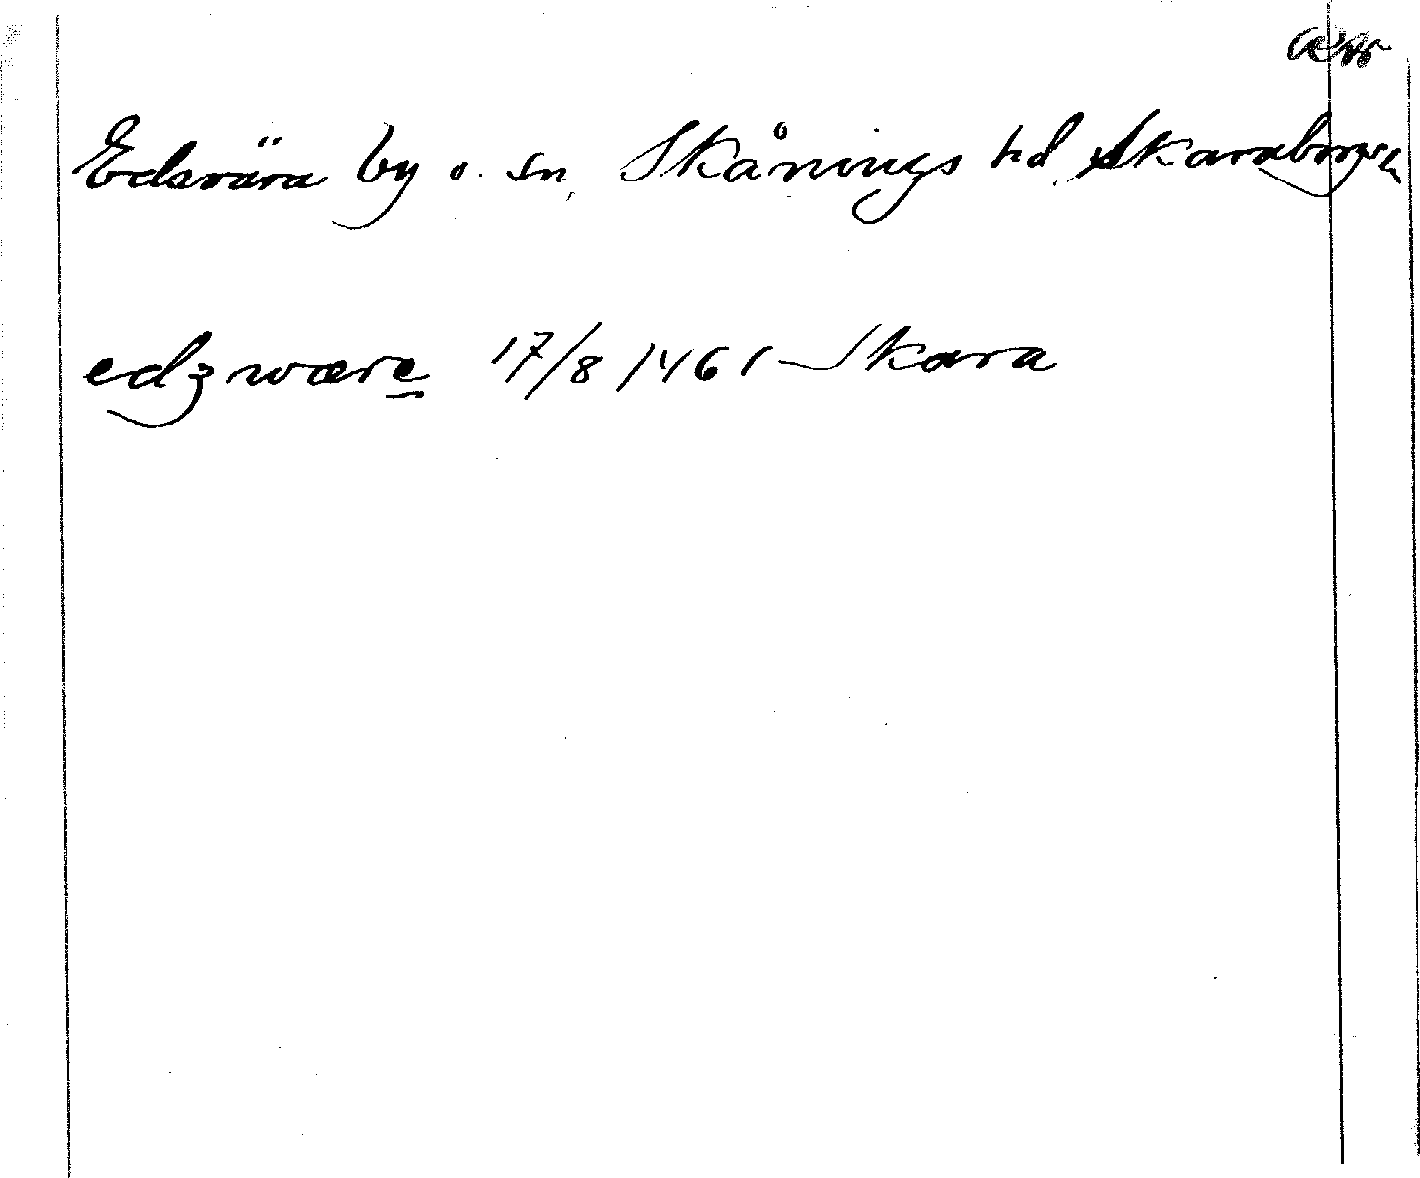 Edsvära by o. sn, Skånings hd, Skaraborgs l.
edzwære 17/8 1461 Skara